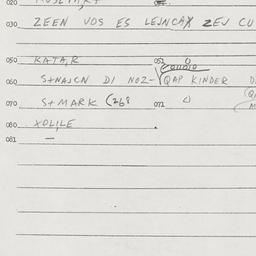 020
030 ZEEN VOS ES LEJNCAX ZEJ CU
050 KATA,R 051
060 S+NAJCN DI NOZ- QAP KINDER
070 S+MARK (268 071
080 XOLILE
081 —